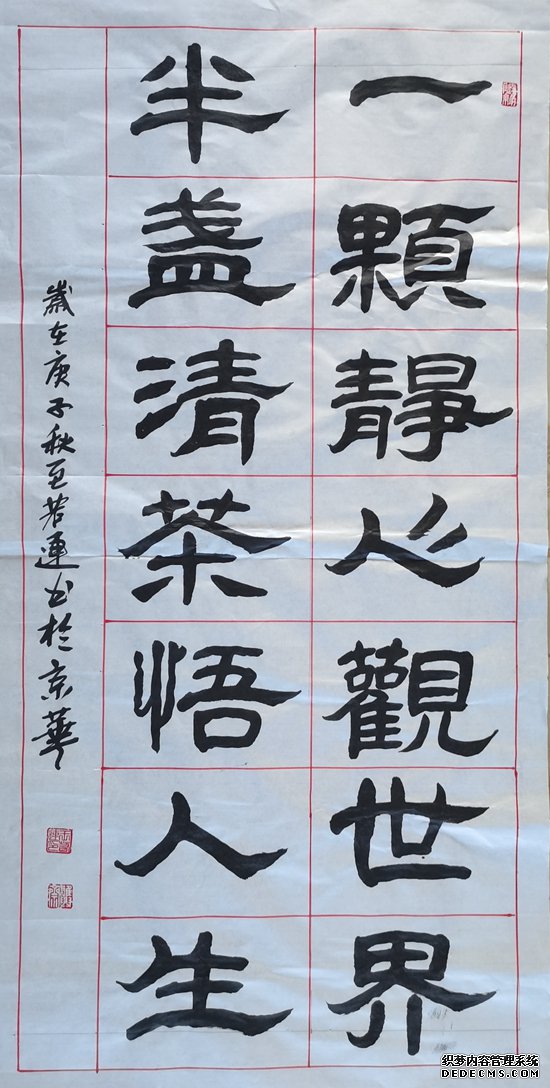 一顆靜心觀世界
半盏清茶悟人生
歲在庚子秋亙若連书於京華
织梦内容管理系统
DEDECMS.COM